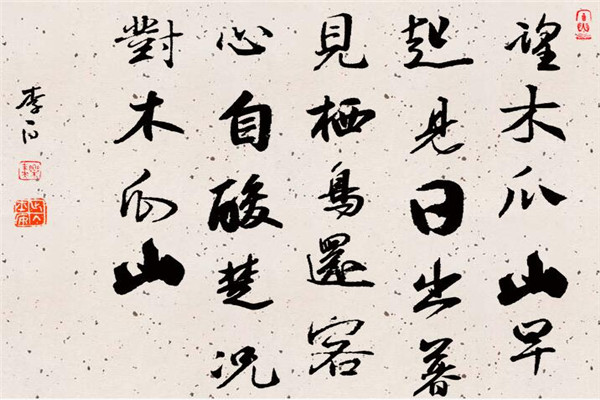 望木瓜山早
起見日出暮
見栖鳥還客
心自酸楚況
對木瓜山
李白